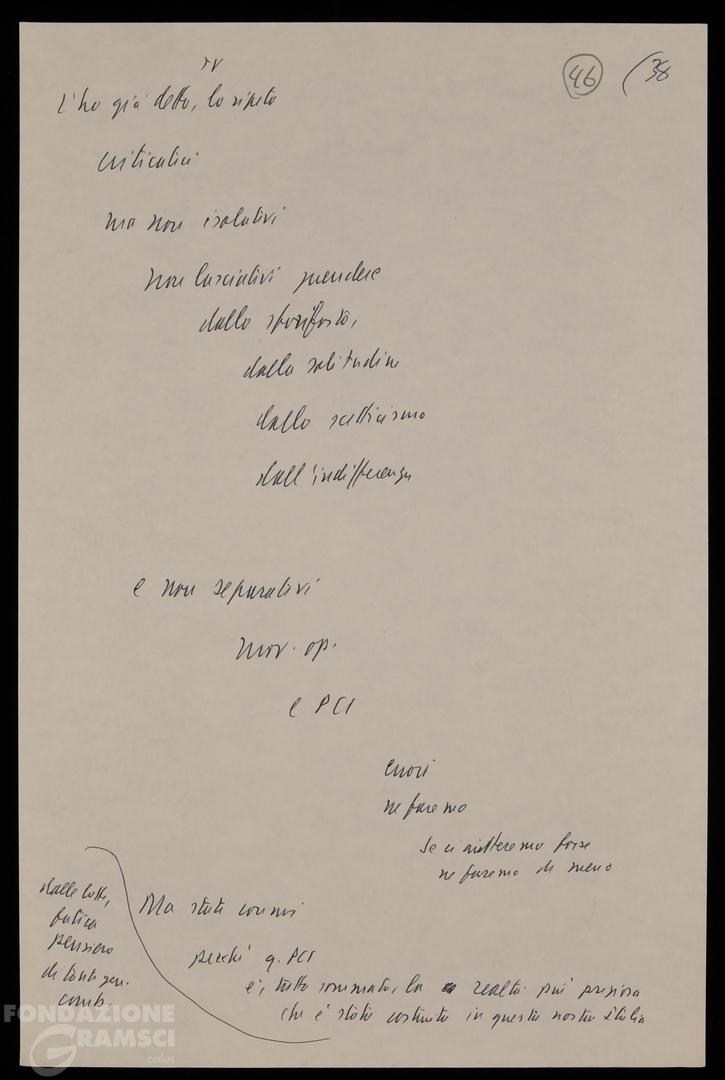 TV
46
(38
L'ho già detto, lo ripeto
criticateci
ma non isolatevi
non lasciatevi prendere
dalla
dalla solitudine
dallo scetticismo
dall'indifferenza
e non separatevi
mov. op.
e PCI
errori
ne faremo
se ci aiuteremo forse
ne faremo di meno
Ma state con noi
perché q. PCI
è, tutto sommato, la realtà più preziosa
che è stata costruita in questa nostra Italia
dalle lotte,
fatica
pensiero
di tanti gen.
comb.
FONDAZIONE
GRAMSCI
onlus